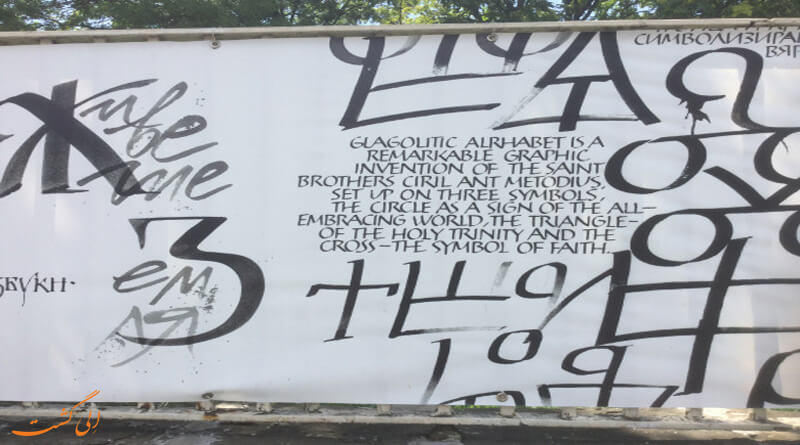 СИМВОЛИЗИРА
ВЯР
Живе
те
GLAGOLITIC ALRHABET IS A
REMARKABLE GRAPHIC
INVENTION OF THE SAINT
BROTHERS CIRIL ANT METODIUS,
SET UP ON THREE SYMBOLS,
THE CIRCLE AS A SIGN OF THE ALL-
EMBRACING WORLD, THE TRIANGLE-
OF THE HOLY TRINITY AND THE
CROSS-THE SYMBOL OF FAITH
Зем
ля
ЗВУКИ·
الی گشت